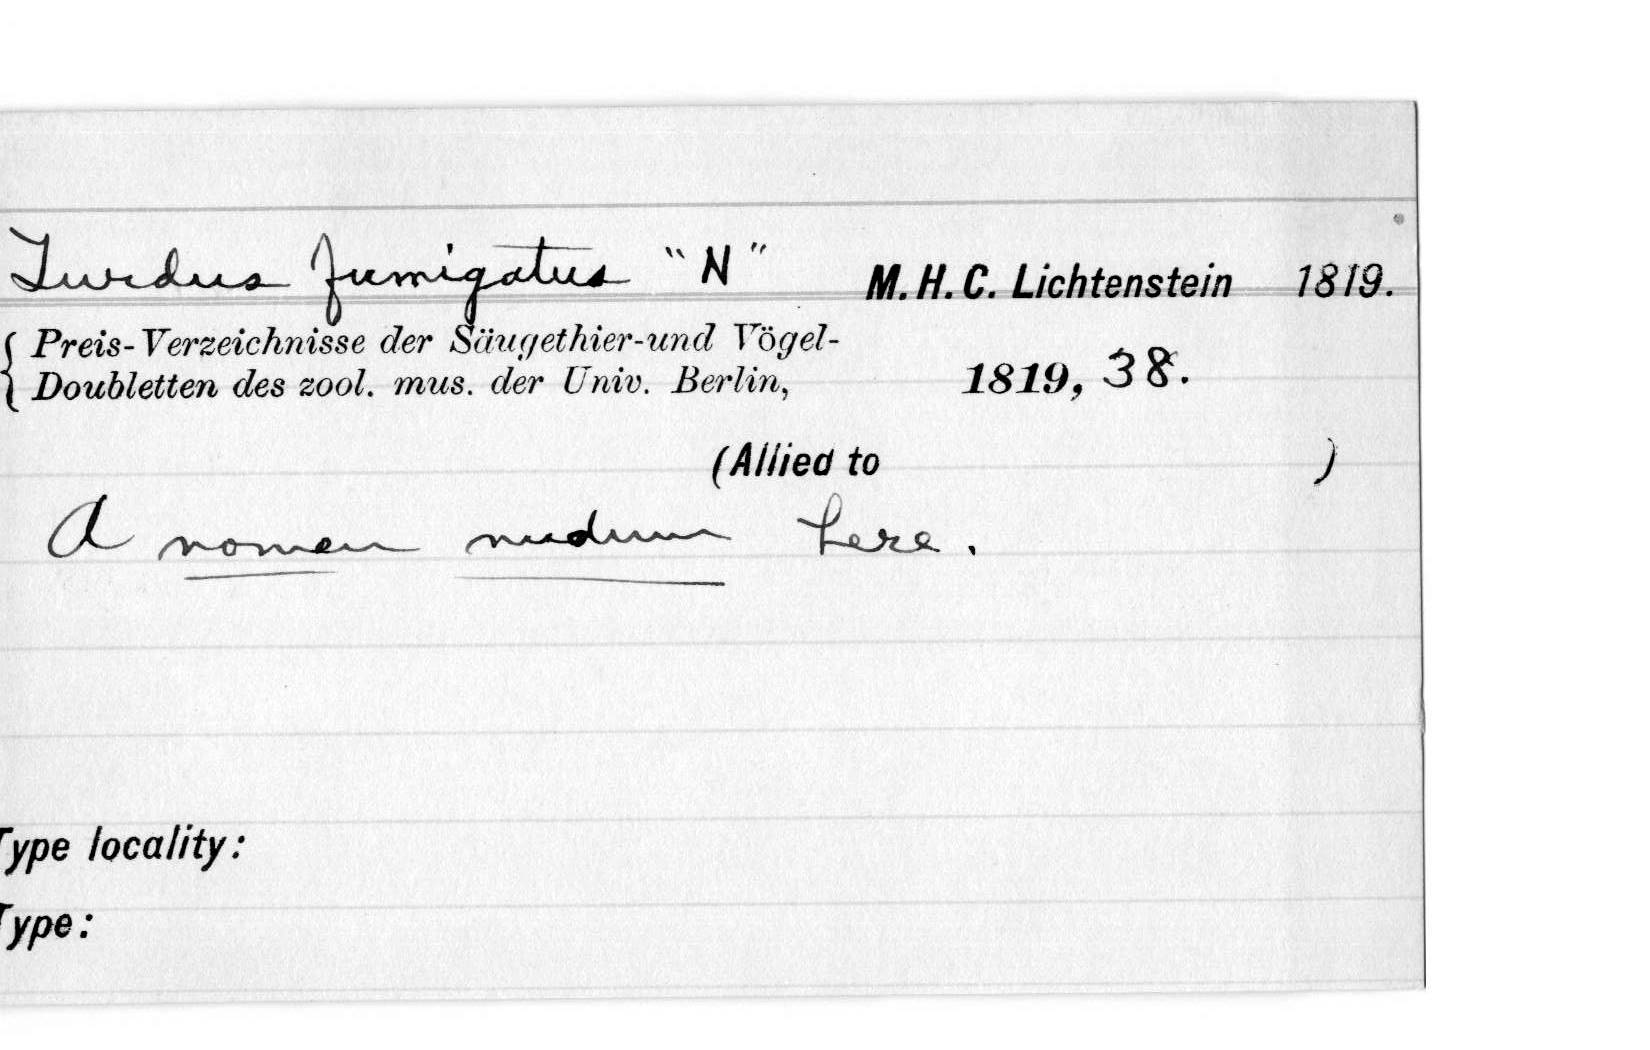 Turdus fumigatus "N" M. H. C. Lichtenstein 1819.
Preis-Verzeichnisse der Säugethier-und Vögel-
Doubletten des zool. mus. der Univ. Berlin, 1819, 38.
(Allied to )
A nomen nudum here.
Type locality:
Type: